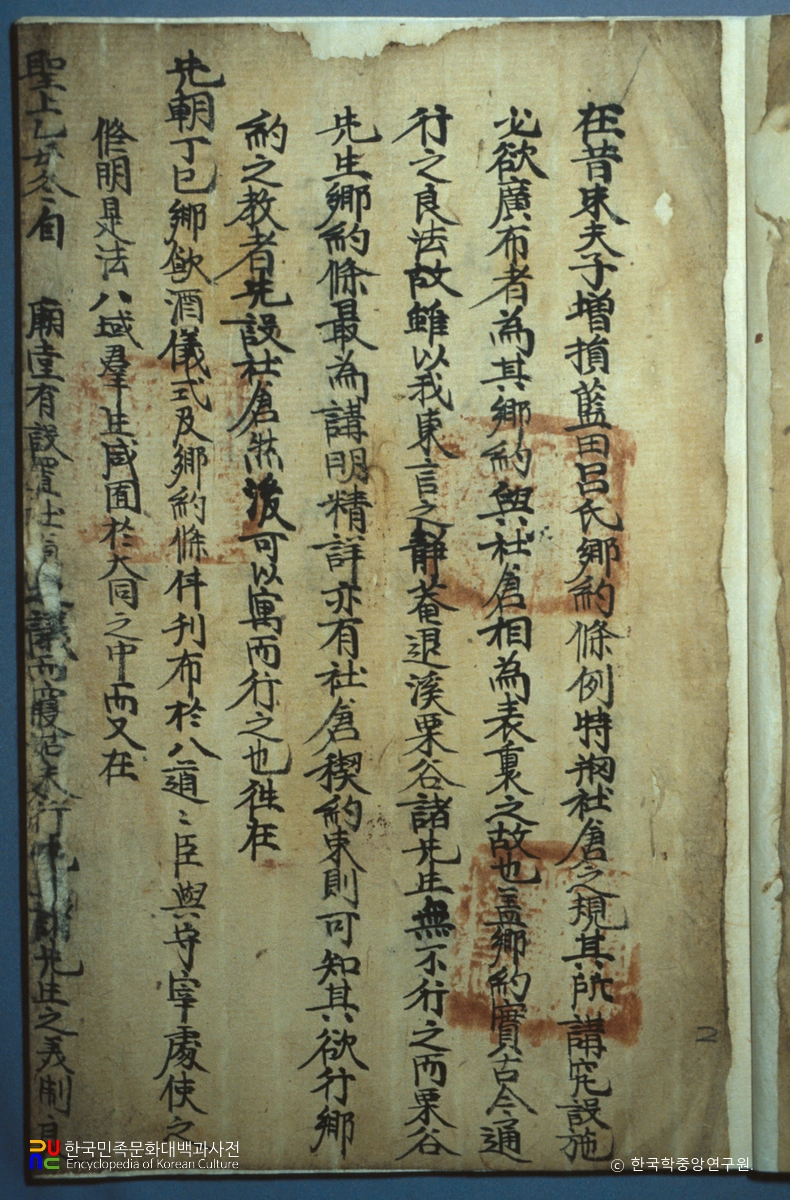 在昔朱夫子增損藍田呂氏鄕約條例特糊社倉之規其所講究設施
必欲廣布者為其鄕約與社倉相為表裏之故也盖鄕約實古今通
行之良法故雖以我東言之靜菴退溪栗谷諸先生無不行之而栗谷
先生鄕約條最為講明精詳亦有社倉稧約束則可知其欲行鄕
約之敎者先設社倉然後可以寓而行之也徃在
先朝丁巳鄕飮酒儀式及鄕約條件刊布於八道〻臣與守宰處使之
修明是法八域羣生咸囿於大同之中而又在
聖上乙亥冬自 廟堂有設置社 之議而寢姑未行 先生之義制
2
한국민족문화대백과사전
Encyclopedia of Korean Culture
© 한국학중앙연구원